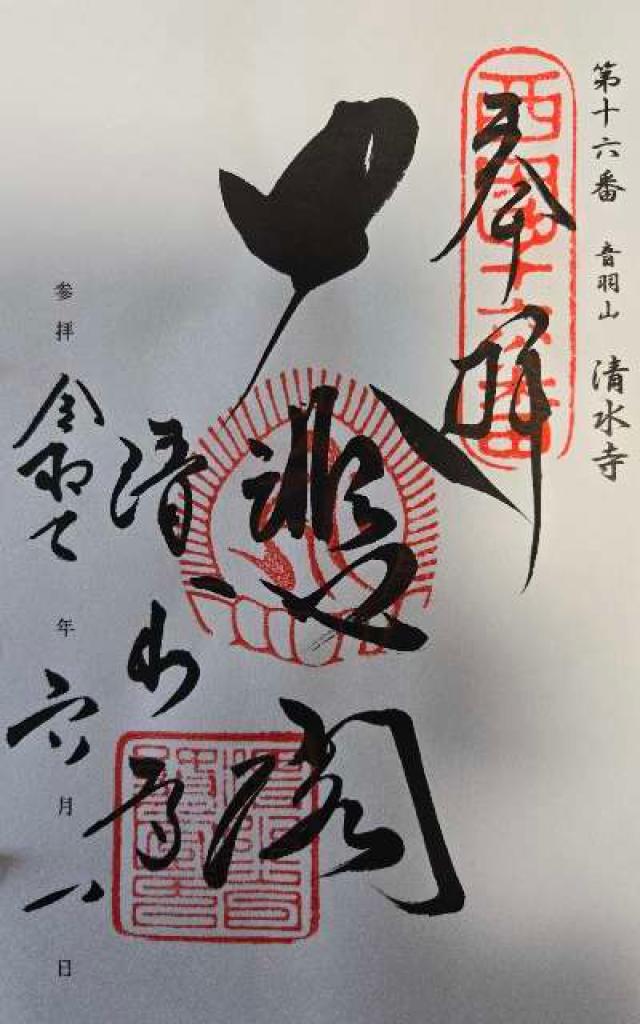 第十六番 音羽山 清水寺
西國十六番
奉拝
大悲閣
清水寺
参拝 令和 年 六月 一日